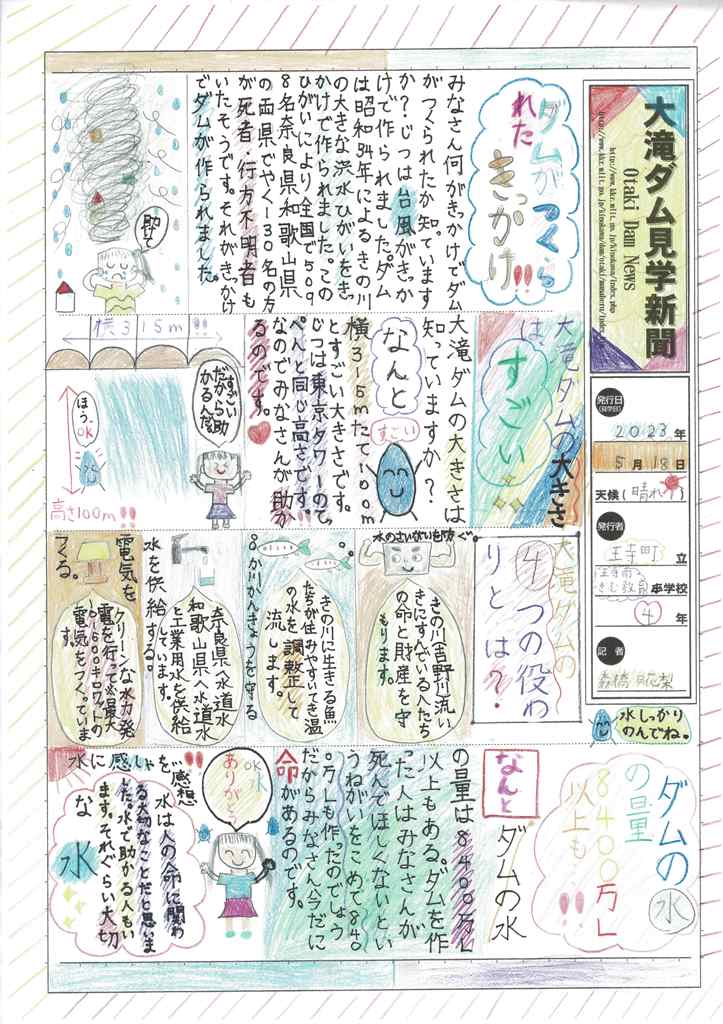 大滝ダム見学新聞
Otaki Dam News
発行日
(見学日)
2023年
5月18日
天候(晴れ)
発行者
王寺町立
学校
4年
記者
水しっかり
のんでね。
ダムがつくら
れた
きっかけ!!
みなさん何がきっかけでダム
がつくられたか知っています
か?じつは台風がきっか
けで作られました。ダム
は昭和34年によるきの川
の大きな洪水ひがいをきっ
かけで作られました。この
ひがいにより全国で509
8名奈良県和歌山県
の両県でやく130名の方
が死者・行方不明者も
いたそうです。それがきっかけ
でダムが作られました。
助けて
大滝ダムの大きさ
は、
すごい
大滝ダムの大きさは
知っていますか?
なんと
すごい
横315mたて100m
とすごい大きさです。
じつは東京タワーのて
ぺんと同じ高さです!!
なのでみなさんが助か
るのです。
横315m!!
すごい
だから助
かるんだ
ほう。OK
高さ100m!!
大滝ダムの
4つの役わ
りとは?
水のさいがいを防ぐ
きの川(吉野川)流い
きにすんでいる人たち
の命と財産を守
もります。
きの川に生きる魚
たちが住みやすいてき温
の水を調整して
流します。
川かんきょうを守る
奈良県へ水道水
和歌山県へ水道水
と工業用水を供給
しています。
水を供給する。
クリーンな水力発
電を行って必最大
10600キロワットの
電気をつくっていま
す。
電気を
つくる。
ダムの水
の量
8400万t
以上も!!
なんとダムの水
の量は8400万t
以上もある。ダムを作
った人はみなさんが
死んでほしくないとい
うねがいをこめて840
0万tも作ったのでしょう
だからみなさん今だに
命があるのです。
OK
水
ありがとう
水に感しゃを!!
感想
水は人の命に関わ
る大切なことだと思いま
した。水で助かる人もい
ます。それぐらい大切
な水